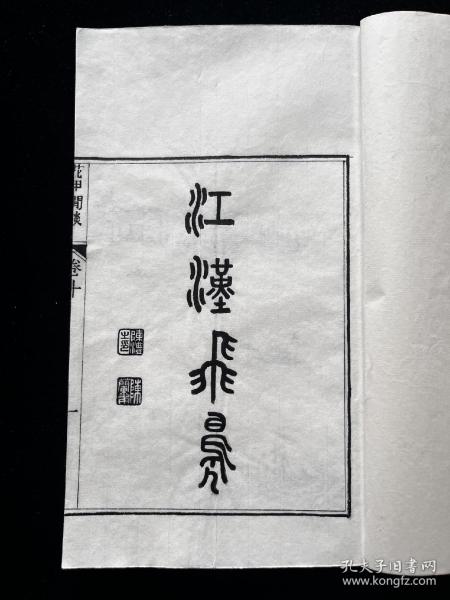 江漢飛鳧
花甲閒談
卷十
一
孔夫子旧书网
www.kongfz.com